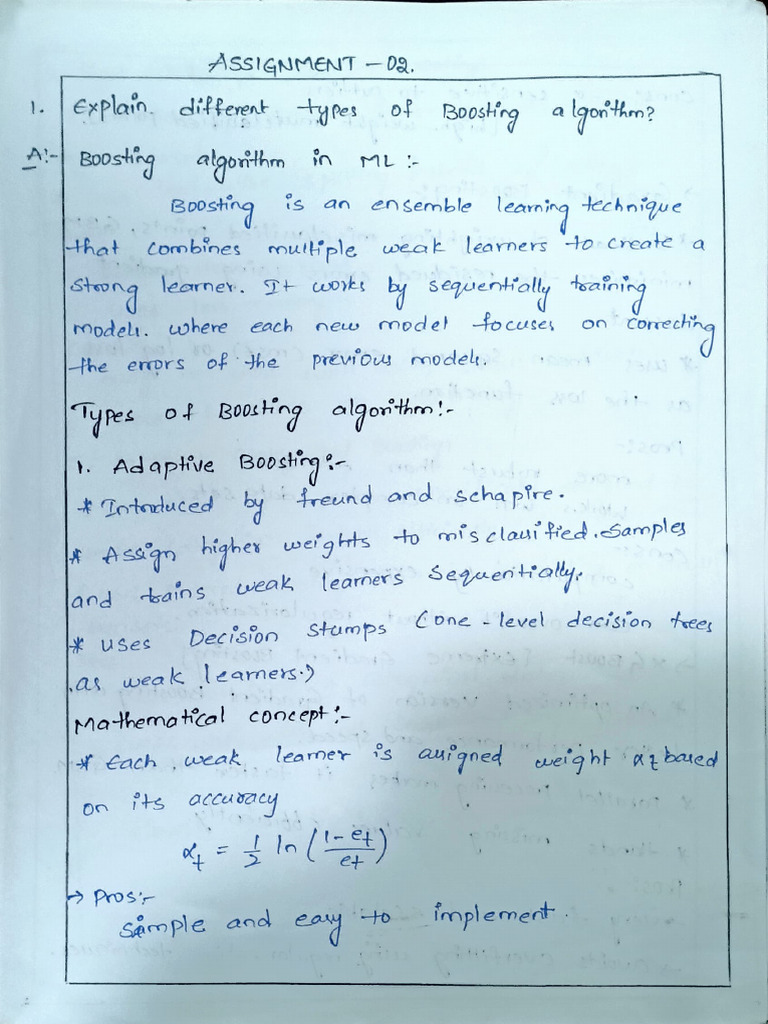 ASSIGNMENT - 02.
1. Explain different types of Boosting algorithm?
A:- Boosting algorithm in ML :-
Boosting is an ensemble learning technique
that combines multiple weak learners to create a
strong learner. It works by sequentially training
models. where each new model focuses on correcting
the errors of the previous models.
Types of Boosting algorithm:-
1. Adaptive Boosting:-
* Introduced by freund and schapire.
* Assign higher weights to misclassified. samples
and trains weak learners sequentially.
* uses Decision stumps (one-level decision trees
as weak learners.)
Mathematical concept:-
* Each weak learner is assigned weight αt based
on its accuracy
αt = 1/2 ln (1-et/et)
→ Pros:-
Simple and easy to implement.